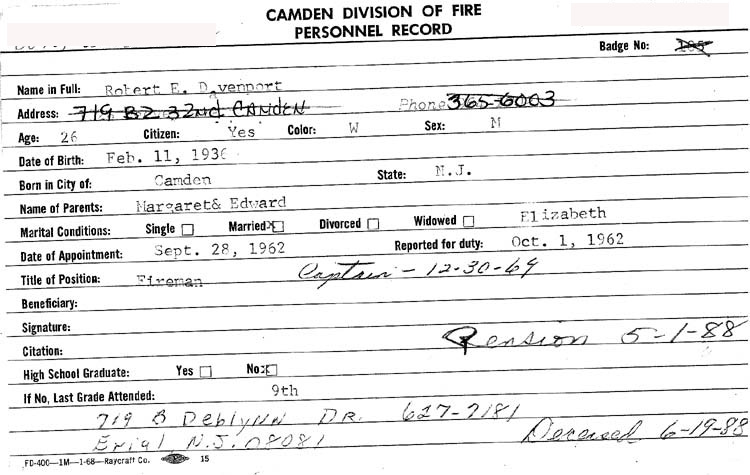 CAMDEN DIVISION OF FIRE
PERSONNEL RECORD
Badge No:
Name in Full: Robert E. Davenport
Address: 719 B2 32nd CAMDEN Phone 365-6003
Age: 26 Citizen: Yes Color: W Sex: M
Date of Birth: Feb. 11, 1936
Born in City of: Camden State: N.J.
Name of Parents: Margaret& Edward
Marital Conditions: Single Married Divorced Widowed Elizabeth
Date of Appointment: Sept. 28, 1962 Reported for duty: Oct. 1, 1962
Title of Position: Fireman Captain - 12-30-69
Beneficiary:
Signature:
Pension 5-1-88
Citation:
High School Graduate: Yes No:
If No, Last Grade Attended: 9th
719 B Deblynn DR. 627-7181
Erial N.J. 08081 Deceased 6-19-88
FD-400—1M—1-68—Raycraft Co. 15